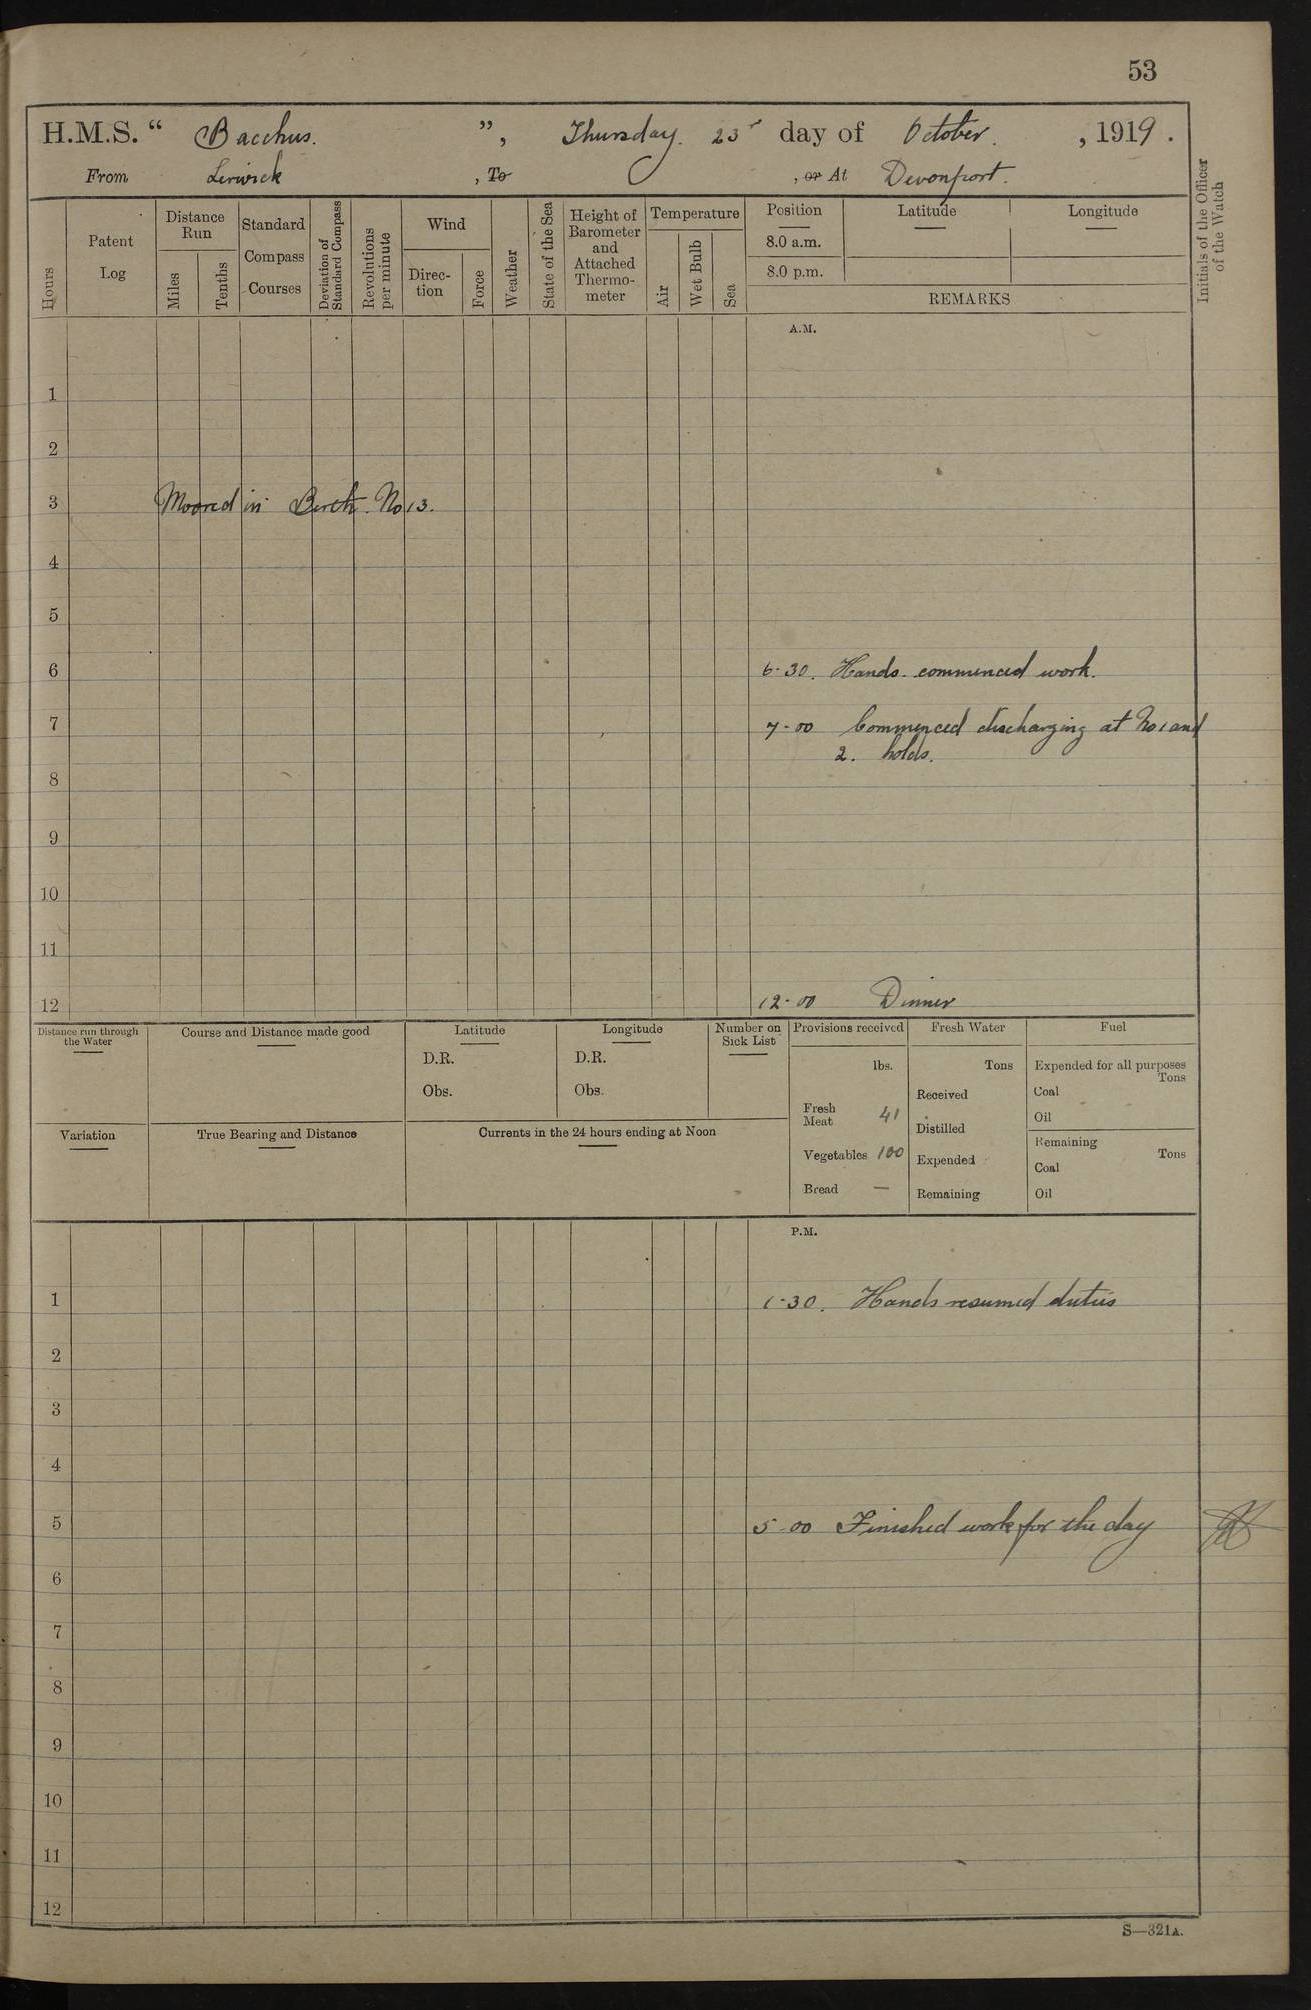 53
H.M.S. “ Bacchus. ”, Thursday. 23r day of October. , 1919.
From Lerwick , To , or At Devonport.
Hours
Patent Log
Distance Run
Miles
Tenths
Standard Compass Courses
Deviation of Standard Compass
Revolutions per minute
Wind
Direc-tion
Force
Weather
State of the Sea
Height of Barometer and Attached Thermo-meter
Temperature
Air
Wet Bulb
Sea
Position
8.0 a.m.
8.0 p.m.
Latitude
Longitude
REMARKS
Initials of the Officer of the Watch
A.M.
1
2
3 Moored in Berth. No 13.
4
5
6 6-30. Hands commenced work.
7 7-00 Commenced discharging at No 1 and
2. holds.
8
9
10
11
12 12-00 Dinner
Distance run through the Water
Course and Distance made good
Latitude
D.R.
Obs.
Longitude
D.R.
Obs.
Number on Sick List
Provisions received
lbs.
Fresh Meat 41
Vegetables 100
Bread —
Fresh Water
Tons
Received
Distilled
Expended
Remaining
Fuel
Expended for all purposes
Tons
Coal
Oil
Remaining
Tons
Coal
Oil
Variation
True Bearing and Distance
Currents in the 24 hours ending at Noon
P.M.
1 1-30. Hands resumed duties
2
3
4
5 5-00 Finished work for the day
6
7
8
9
10
11
12
S—321A.